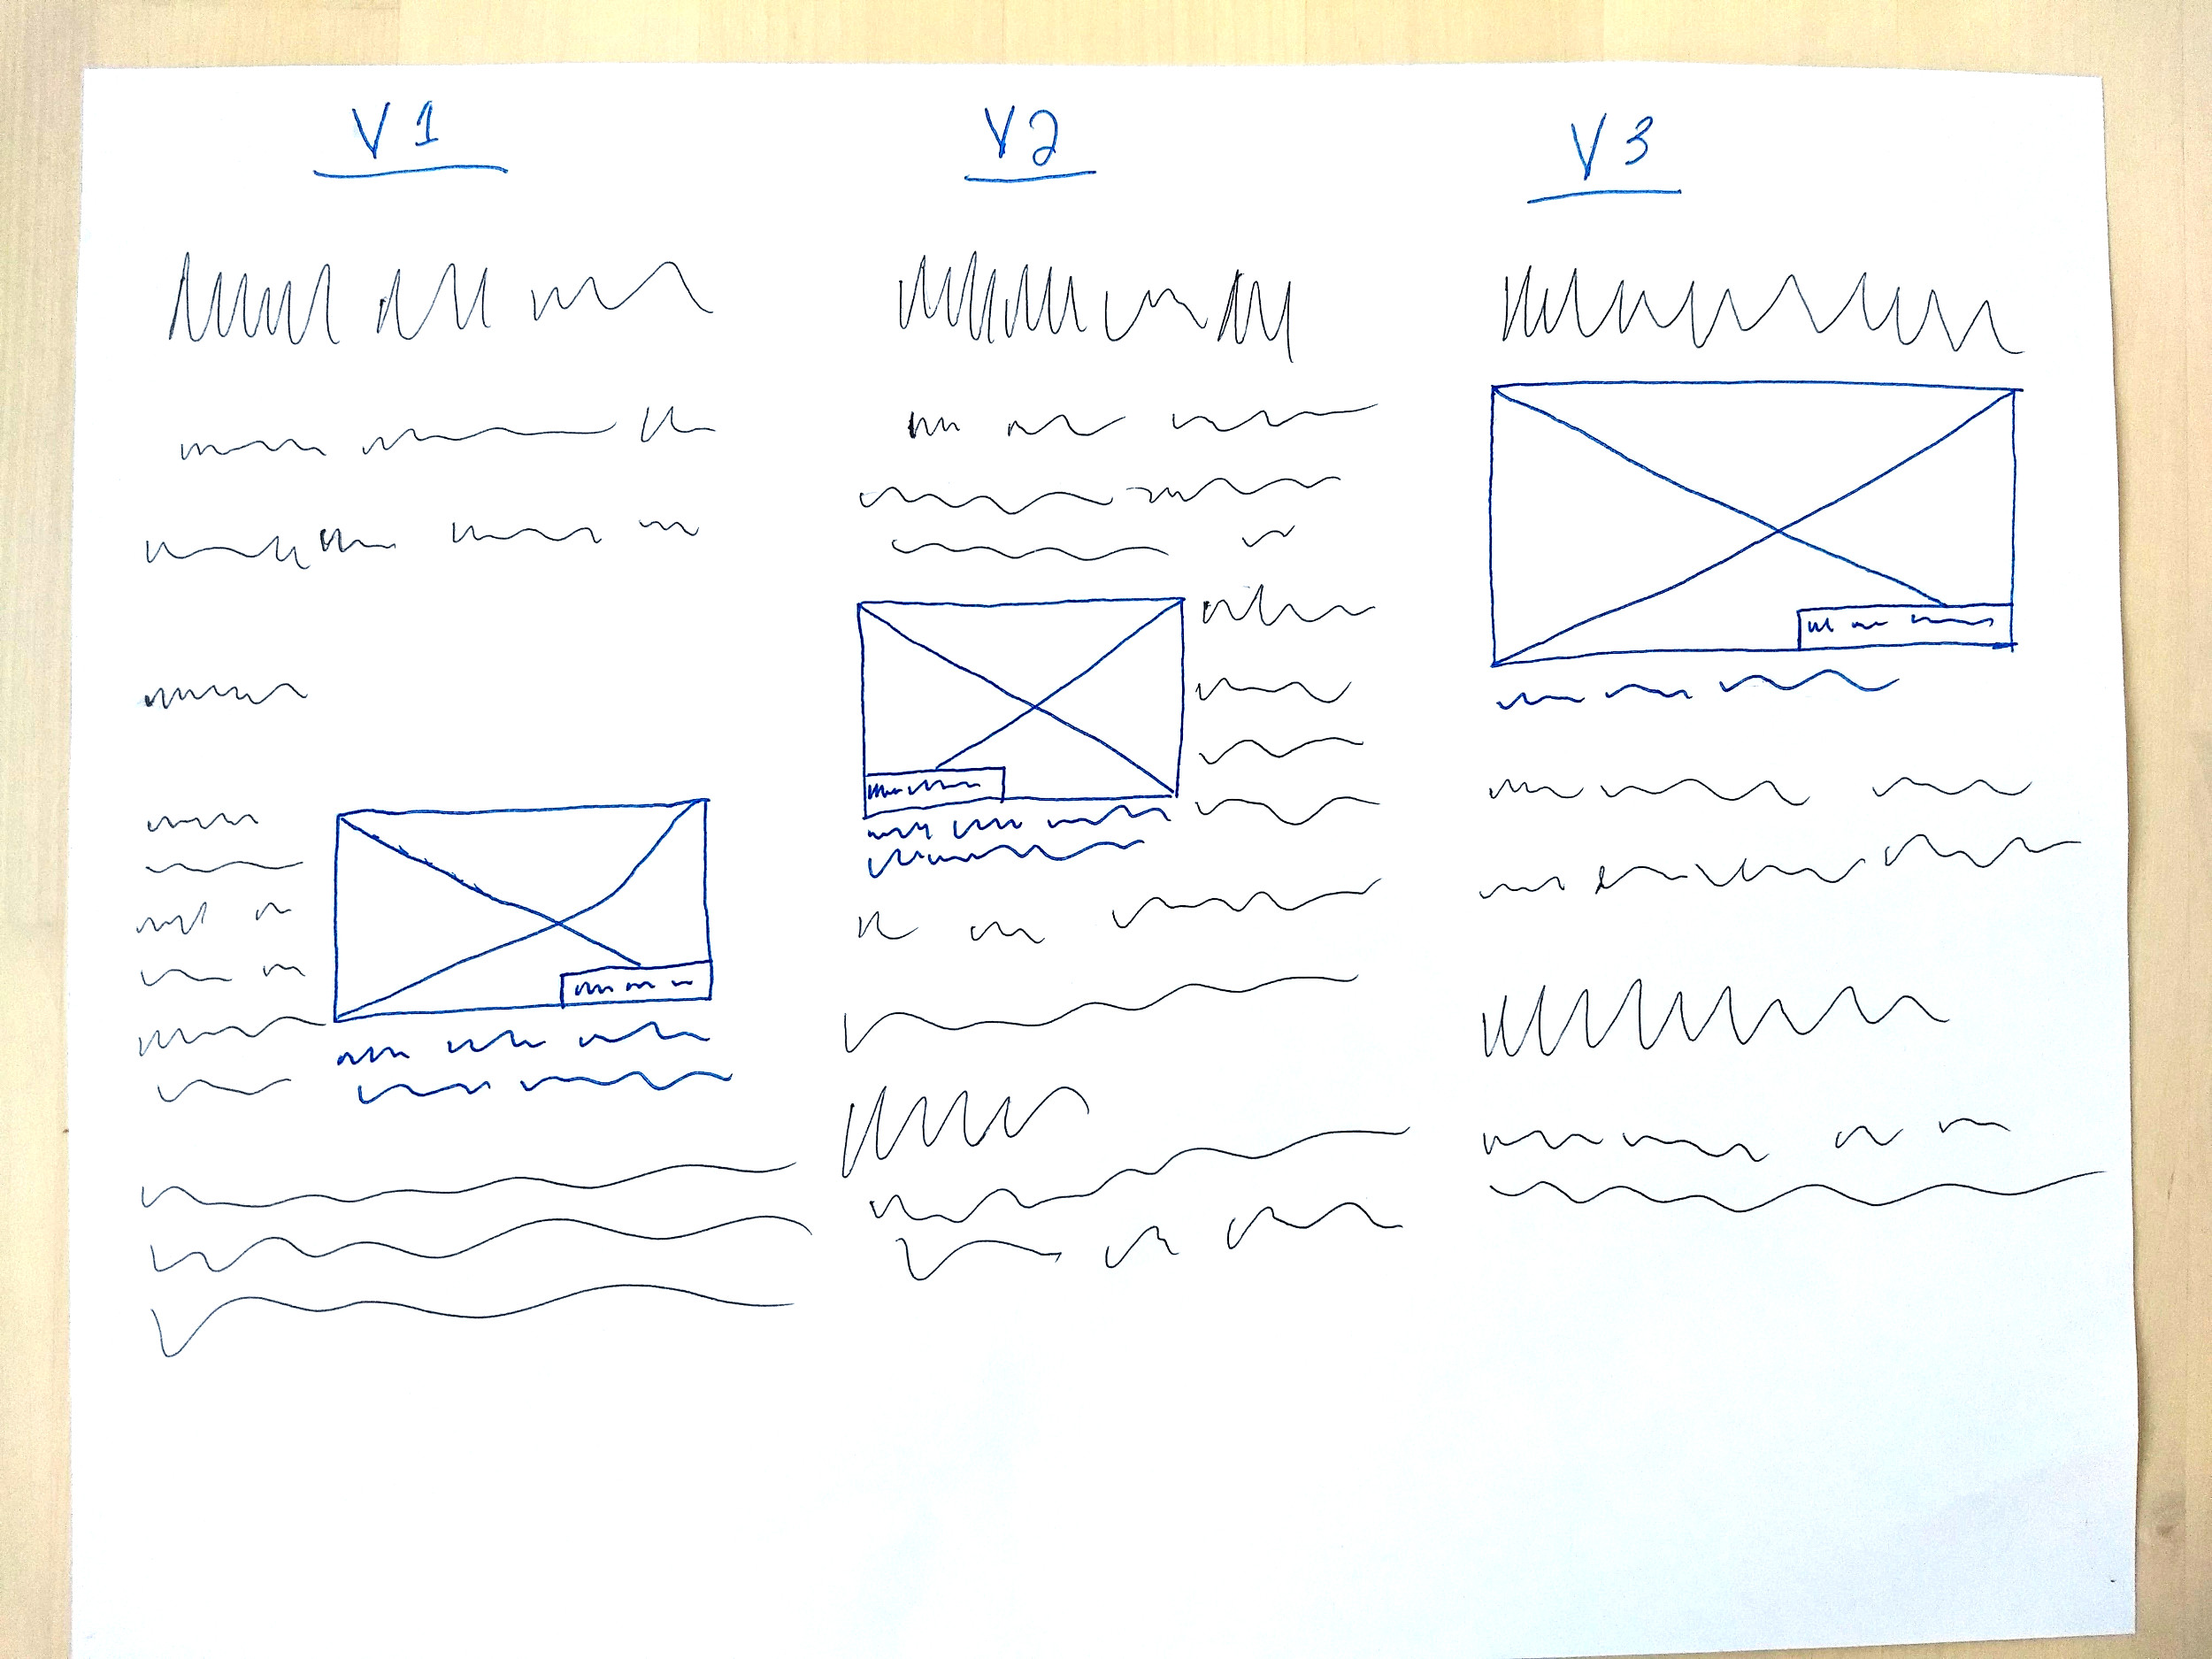 V1
V2
V3